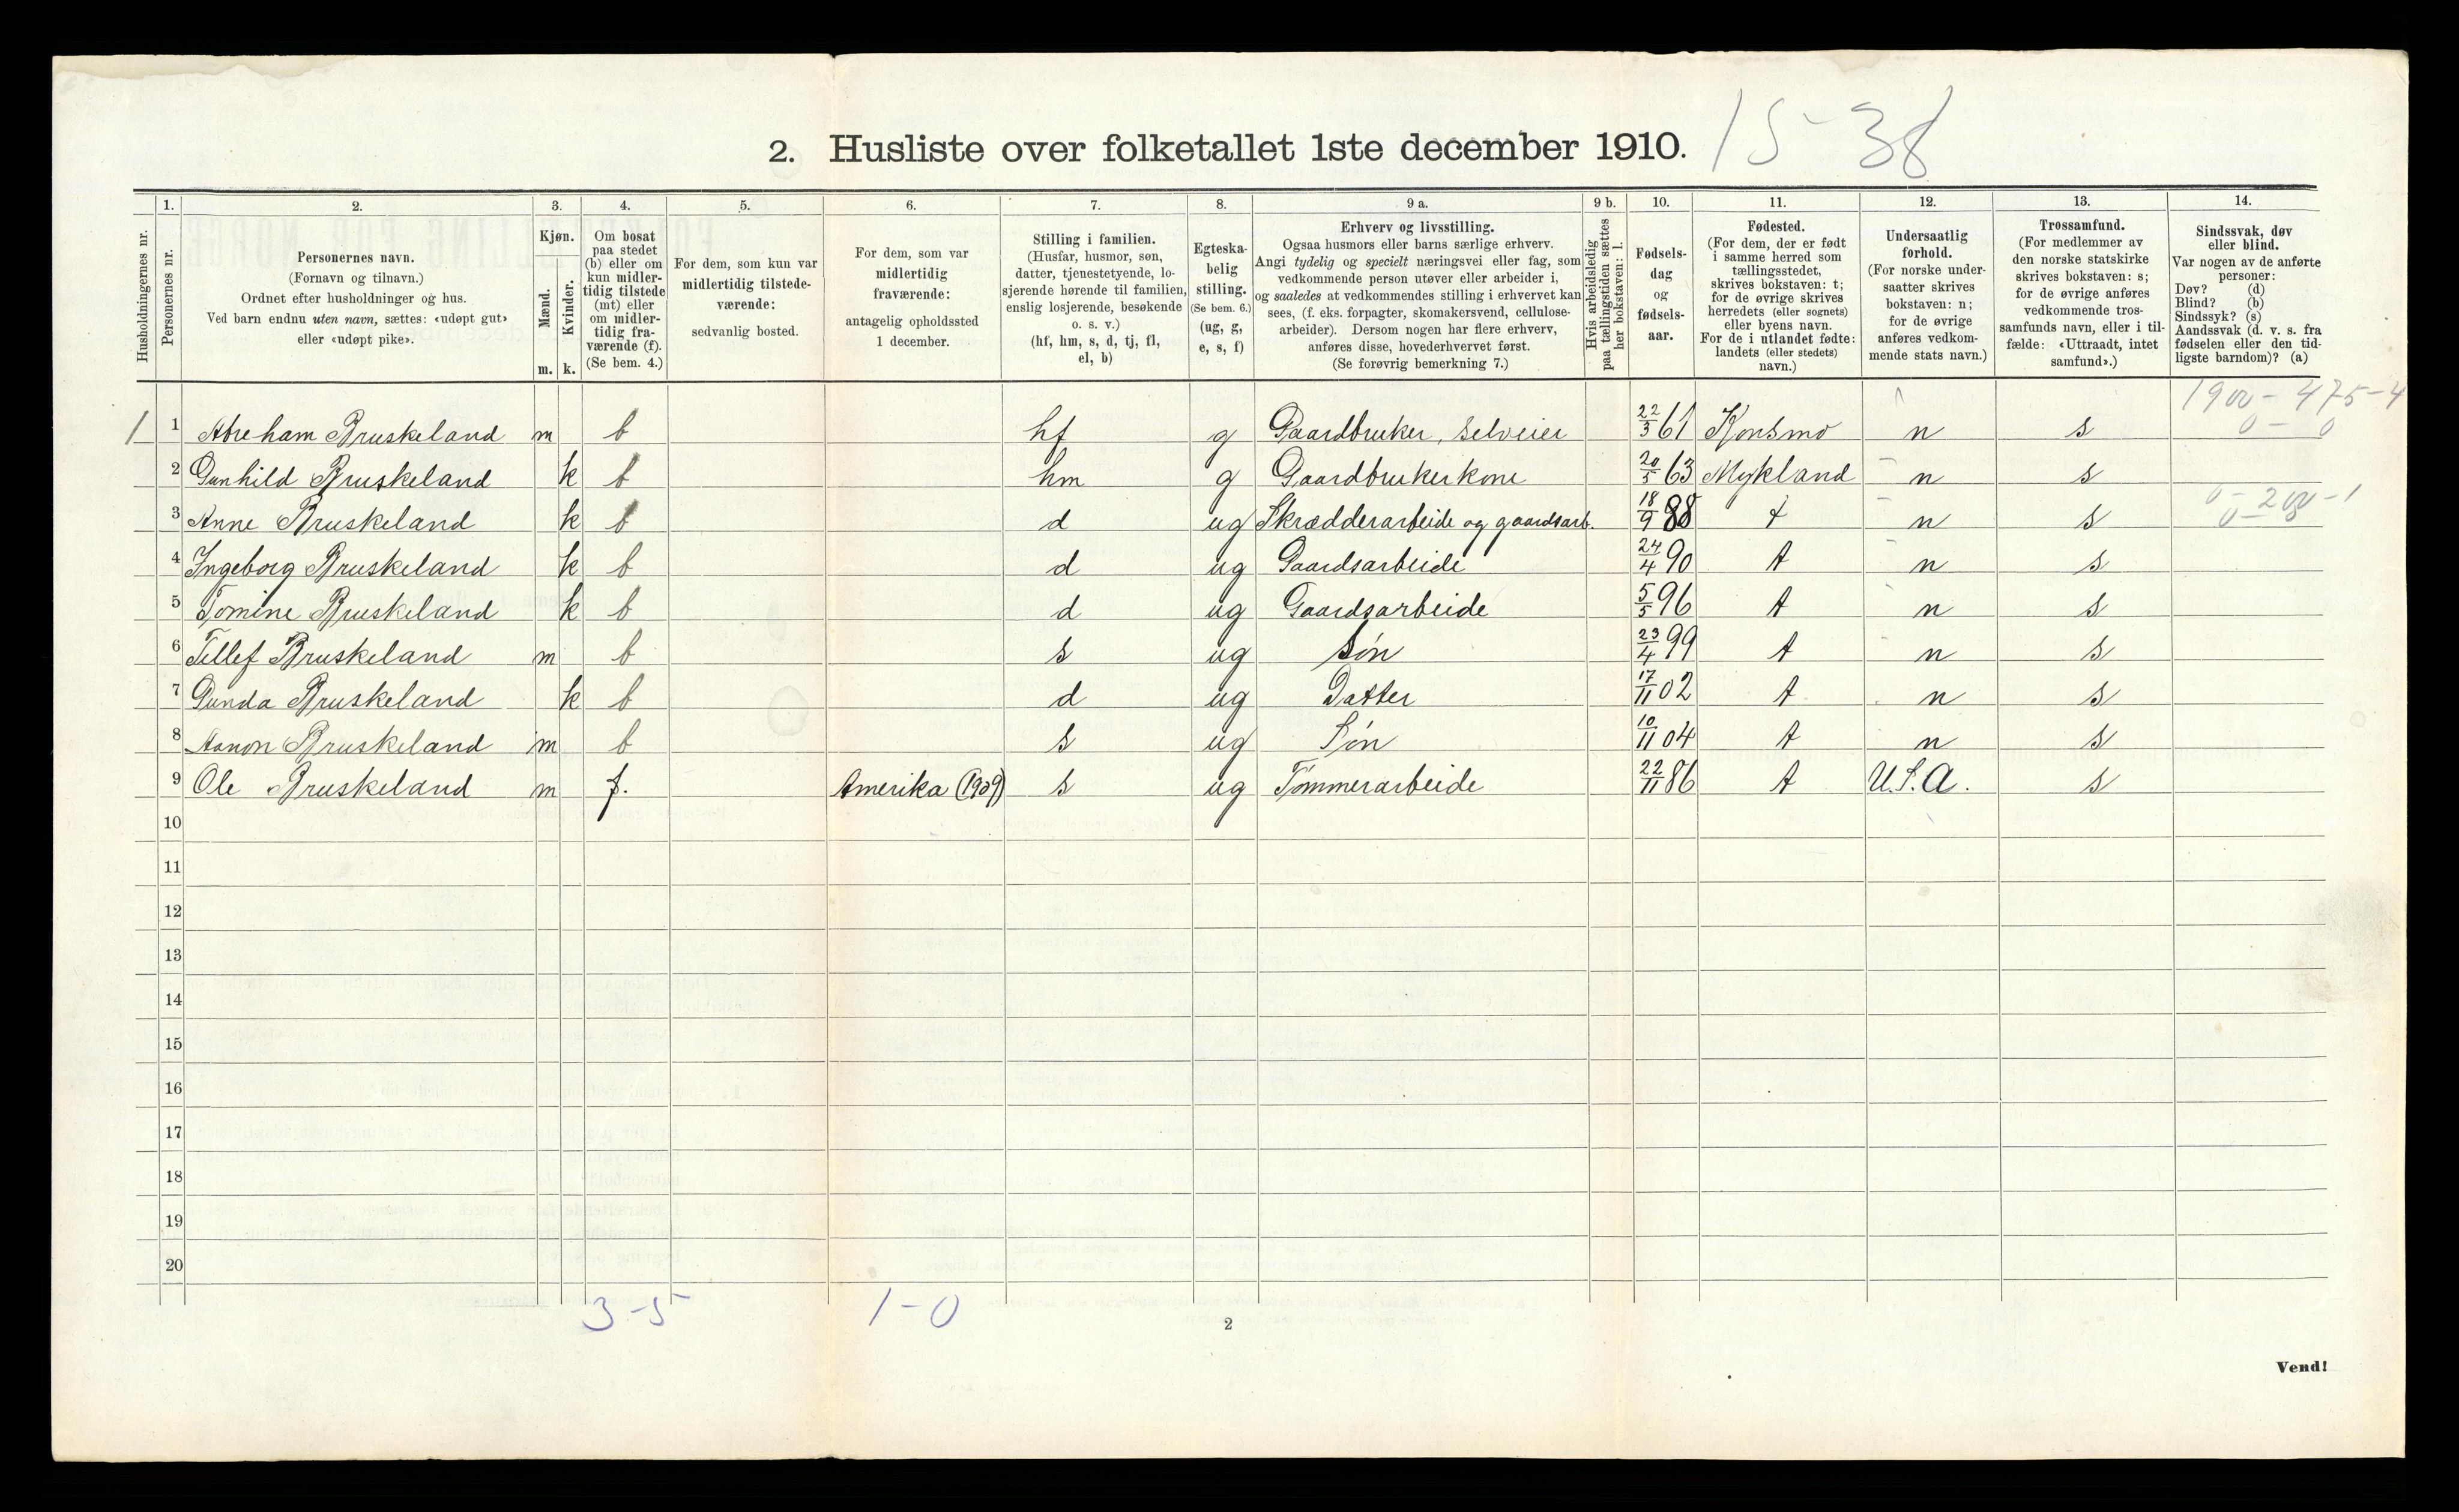 2. Husliste over folketallet 1ste december 1910. 15-38
1. 2. 3. 4. 5. 6. 7. 8. 9 a. 9 b. 10. 11. 12. 13. 14.
Husholdningernes nr.
Personernes nr.
Personernes navn.
(Fornavn og tilnavn.)
Ordnet efter husholdninger og hus.
Ved barn endnu uten navn, sættes: «udøpt gut»
eller «udøpt pike».
Kjøn.
Mænd.
Kvinder.
m. k.
Om bosat
paa stedet
(b) eller om
kun midler-
tidig tilstede
(mt) eller
om midler-
tidig fra-
værende (f).
(Se bem. 4.)
For dem, som kun var
midlertidig tilstede-
værende:
sedvanlig bosted.
For dem, som var
midlertidig
fraværende:
antagelig opholdssted
1 december.
Stilling i familien.
(Husfar, husmor, søn,
datter, tjenestetyende, lo-
sjerende hørende til familien,
enslig losjerende, besøkende
o. s. v.)
(hf, hm, s, d, tj, fl,
el, b)
Egteska-
belig
stilling.
(Se bem. 6.)
(ug, g,
e, s, f)
Erhverv og livsstilling.
Ogsaa husmors eller barns særlige erhverv.
Angi tydelig og specielt næringsvei eller fag, som
vedkommende person utøver eller arbeider i,
og saaledes at vedkommendes stilling i erhvervet kan
sees, (f. eks. forpagter, skomakersvend, cellulose-
arbeider). Dersom nogen har flere erhverv,
anføres disse, hovederhvervet først.
(Se forøvrig bemerkning 7.)
Hvis arbeidsledig
paa tællingstiden sættes
her bokstaven: l.
Fødsels-
dag
og
fødsels-
aar.
Fødested.
(For dem, der er født
i samme herred som
tællingsstedet,
skrives bokstaven: t;
for de øvrige skrives
herredets (eller sognets)
eller byens navn.
For de i utlandet fødte:
landets (eller stedets)
navn.)
Undersaatlig
forhold.
(For norske under-
saatter skrives
bokstaven: n;
for de øvrige
anføres vedkom-
mende stats navn.)
Trossamfund.
(For medlemmer av
den norske statskirke
skrives bokstaven: s;
for de øvrige anføres
vedkommende tros-
samfunds navn, eller i til-
fælde: «Uttraadt, intet
samfund».)
Sindssvak, døv
eller blind.
Var nogen av de anførte
personer:
Døv? (d)
Blind? (b)
Sindssyk? (s)
Aandssvak (d. v. s. fra
fødselen eller den tid-
ligste barndom)? (a)
1900 - 475 - 4
1 1 Abreham Bruskeland m b hf g Gaardbruker, selveier 22/3 61 Konsmo n s 0 - 0
2 Gunhild Bruskeland k b hm g Gaardbrukerkone 20/5 63 Mykland n s
0 - 200 - 1
3 Anne Bruskeland k b d ug Skrædderarbeide og gaardsarb. 18/9 88 t n s
4 Ingeborg Bruskeland k b d ug Gaardsarbeide 24/4 90 t n s
5 Tomine Bruskeland k b d ug Gaardsarbeide 5/5 96 t n s
6 Tellef Bruskeland m b s ug Søn 23/4 99 t n s
7 Gunda Bruskeland k b d ug Datter 17/11 02 t n s
8 Aanon Bruskeland m b s ug Søn 10/11 04 t n s
9 Ole Bruskeland m f. Amerika (1909) s ug Tømmerarbeide 22/11 86 t U.S.A. s
10
11
12
13
14
15
16
17
18
19
20
3-5 1-0
2
Vend!